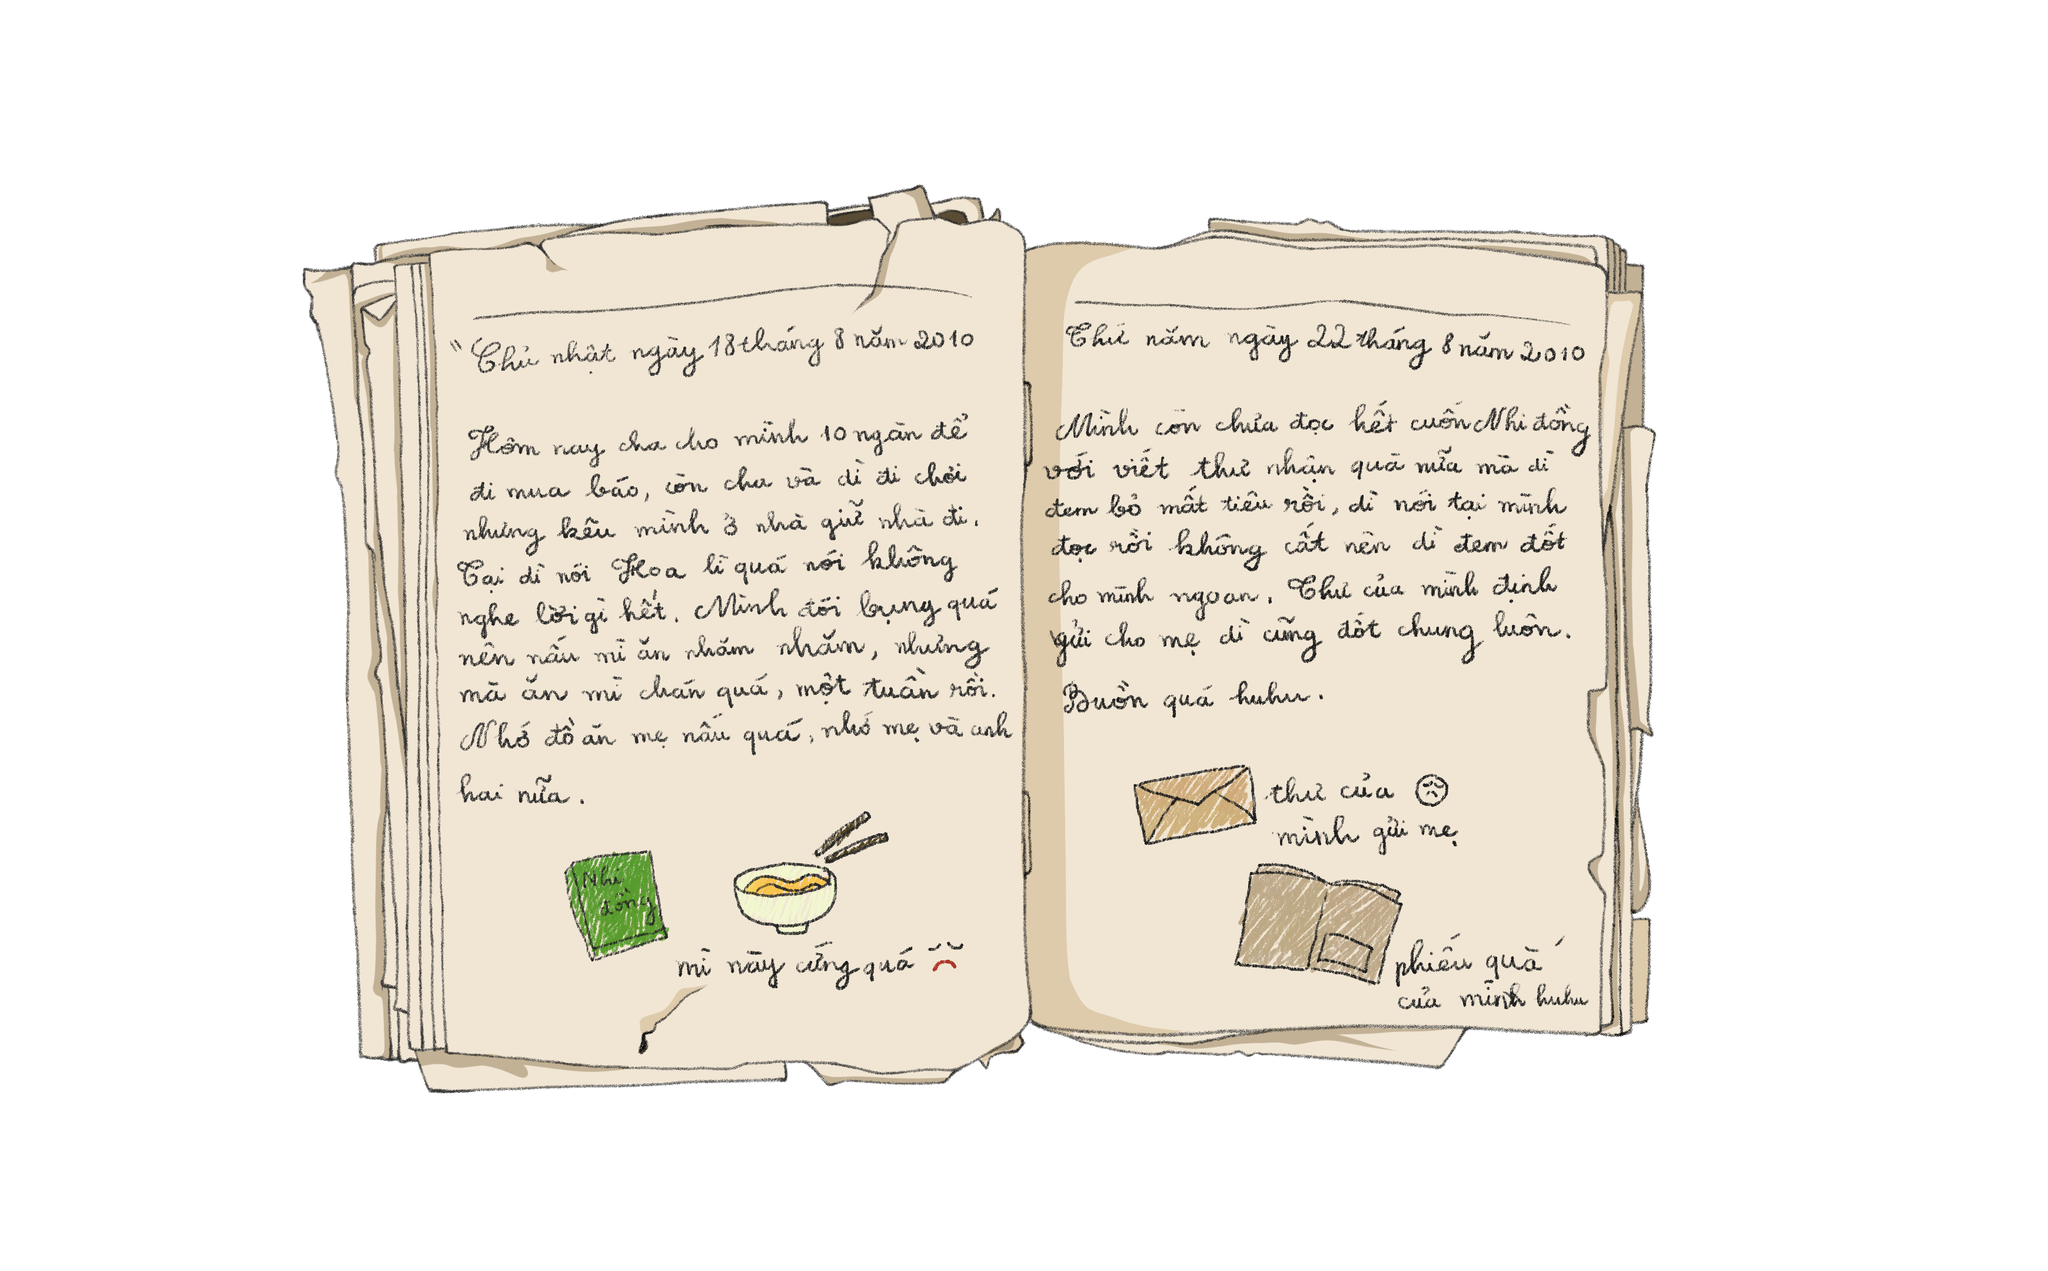 "Chủ nhật ngày 18 tháng 8 năm 2010
Hôm nay cha cho mình 10 ngàn để
đi mua báo, còn cha và dì đi chơi
nhưng kêu mình ở nhà giữ nhà đi.
Tại dì nói Hoa lì quá nói không
nghe lời gì hết. Mình đói bụng quá
nên nấu mì ăn nhăm nhăm, nhưng
mà ăn mì chán quá, một tuần rồi.
Nhớ đồ ăn mẹ nấu quá, nhớ mẹ và anh
hai nữa.
Nhi
đồng
mì này cứng quá
Thứ năm ngày 22 tháng 8 năm 2010
Mình còn chưa đọc hết cuốn Nhi đồng
với viết thư nhận quà nữa mà dì
đem bỏ mất tiêu rồi, dì nói tại mình
đọc rồi không cất nên dì đem đốt
cho mình ngoan. Thư của mình định
gửi cho mẹ dì cũng đốt chung luôn.
Buồn quá huhu.
thư của
mình gửi mẹ
phiếu quà
của mình huhu